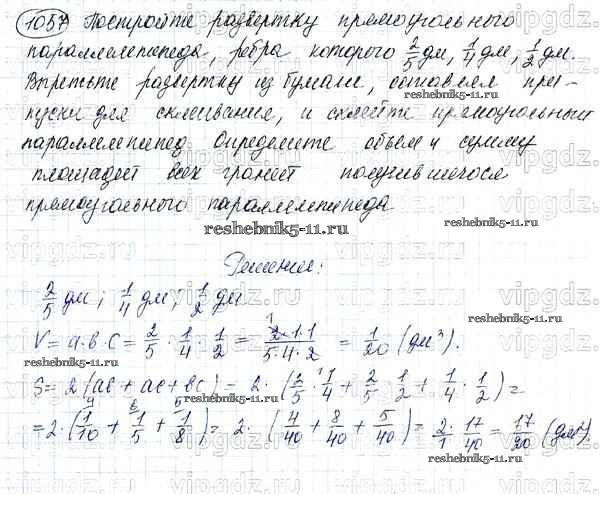 1057 Постройте развертку прямоугольного
параллелепипеда, ребра которого 2/5 дм, 1/4 дм, 1/2 дм.
Вырежьте развертку из бумаги, оставляя при-
reshebnik5-11.ru
пуски для склеивания, и склейте прямоугольный
параллелепипед. Определите объем и сумму
площадей всех граней получившегося
прямоугольного параллелепипеда
reshebnik5-11.ru
reshebnik5-11.ru
Решение:
2/5 дм; 1/4 дм; 1/2 дм
V = a·b·c = 2/5 · 1/4 · 1/2 = 2·1·1/5·4·2 = 1/20 (дм³).
reshebnik5-11.ru
reshebnik5-11.ru
S = 2(ab + ac + bc) = 2·(2/5 · 1/4 + 2/5 · 1/2 + 1/4 · 1/2) =
= 2·(1/10 + 1/5 + 1/8) = 2·(4/40 + 8/40 + 5/40) = 2/1 · 17/40 = 17/20 (дм²).
reshebnik5-11.ru
vipgdz.ru